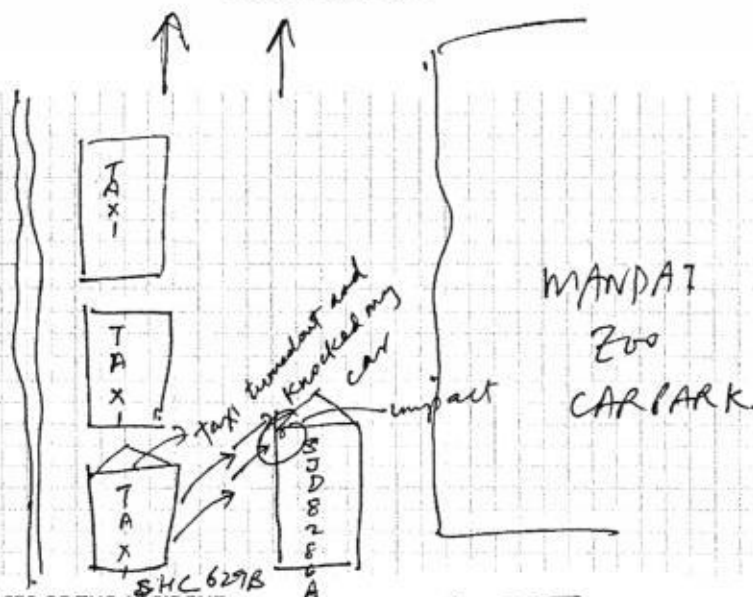 TAXI
TAXI
TAXI
SHC 629B
taxi turned out and
knocked my
car
impact
SJD8286A
MANDAI
ZOO
CARPARK